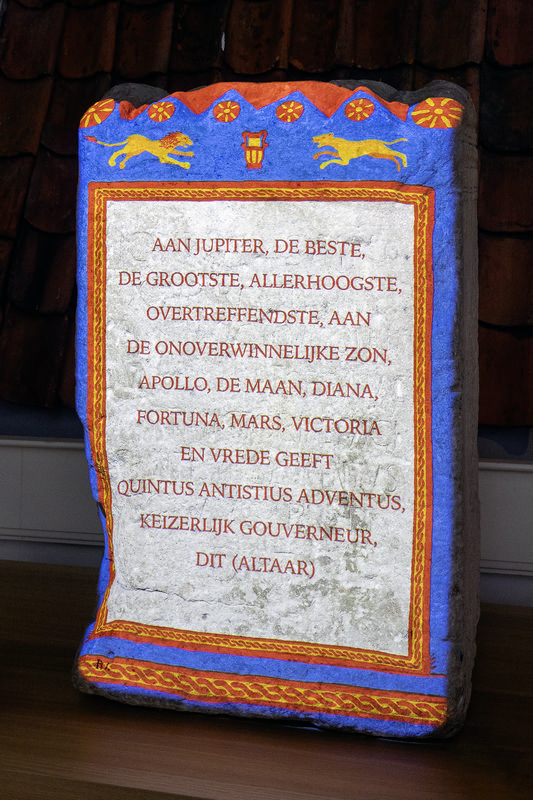 AAN JUPITER, DE BESTE,
DE GROOTSTE, ALLERHOOGSTE,
OVERTREFFENDSTE, AAN
DE ONOVERWINNELIJKE ZON,
APOLLO, DE MAAN, DIANA,
FORTUNA, MARS, VICTORIA
EN VREDE GEEFT
QUINTUS ANTISTIUS ADVENTUS,
KEIZERLIJK GOUVERNEUR,
DIT (ALTAAR)